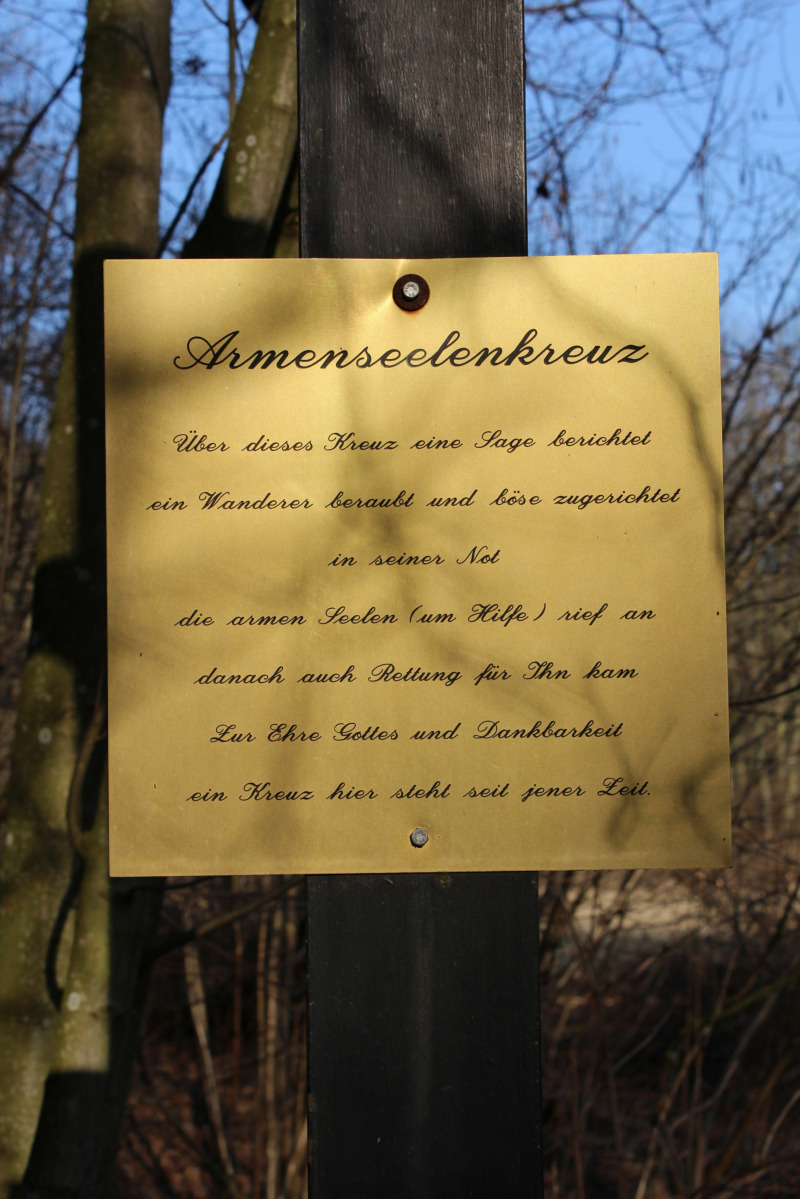 Armenseelenkreuz
Über dieses Kreuz eine Sage berichtet
ein Wanderer beraubt und böse zugerichtet
in seiner Not
die armen Seelen (um Hilfe) rief an
danach auch Rettung für Ihn kam
Zur Ehre Gottes und Dankbarkeit
ein Kreuz hier steht seit jener Zeit.